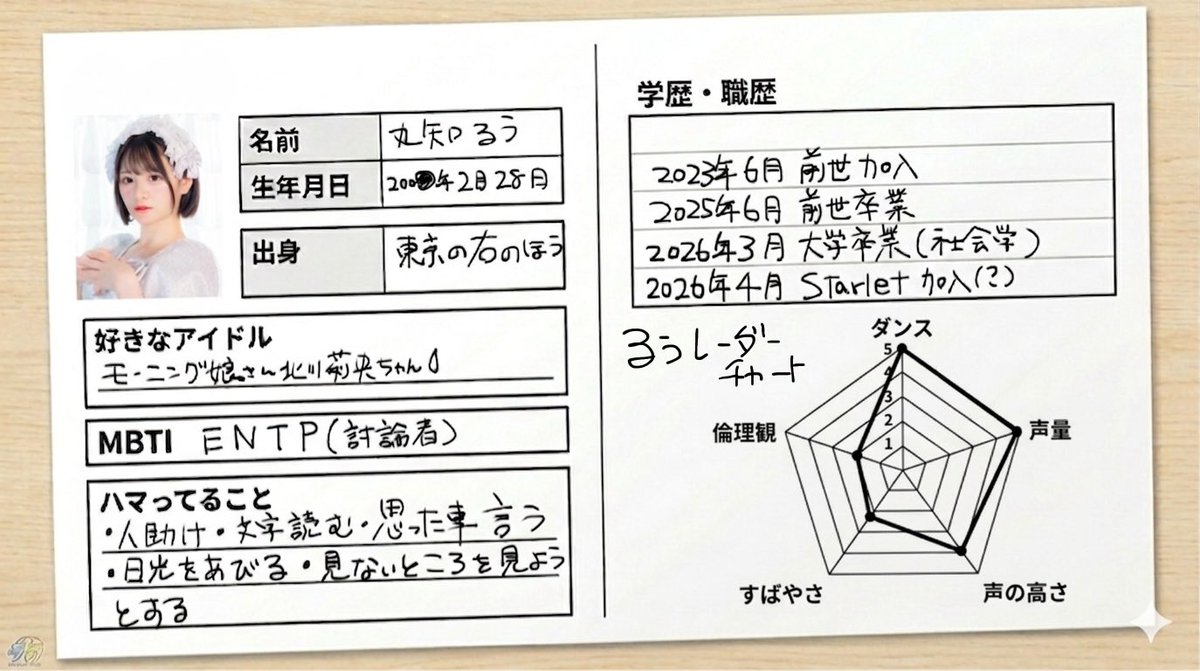 名前 丸知るう
生年月日 200 年2月28日
出身 東京の右のほう
好きなアイドル
モーニング娘。さん北川莉央ちゃん
MBTI ENTP(討論者)
ハマってること
・人助け・文字読む・思った事言う
・日光をあびる・見ないところを見よう
とする
学歴・職歴
2023年6月 前世加入
2025年6月 前世卒業
2026年3月 大学卒業(社会学)
2026年4月 Starlet加入(?)
るうレーダー
チャート
ダンス
5
4
3
2
1
倫理観
声量
すばやさ
声の高さ